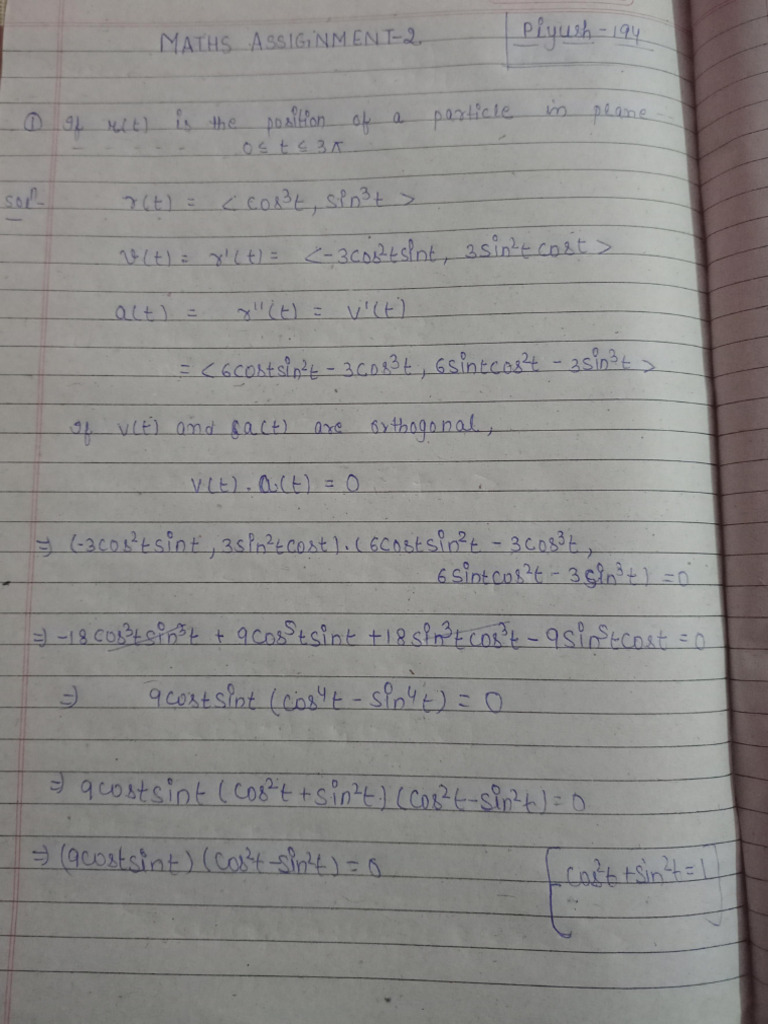 MATHS ASSIGNMENT-2.
Piyush-194
① If r(t) is the position of a particle in plane
0 ≤ t ≤ 3π
Solⁿ- r(t) = <cos³t, sin³t>
v(t) = r'(t) = <-3cos²tsint, 3sin²tcost>
a(t) = r''(t) = v'(t)
= <6costsin²t - 3cos³t, 6sintcos²t - 3sin³t>
If v(t) and a(t) are orthogonal,
v(t).a(t) = 0
⇒ (-3cos²tsint, 3sin²tcost).(6costsin²t - 3cos³t,
6sintcos²t - 3sin³t) = 0
⇒ -18cos³tsin³t + 9cos⁵tsint + 18sin³tcos³t - 9sin⁵tcost = 0
⇒ 9costsint (cos⁴t - sin⁴t) = 0
⇒ 9costsint (cos²t + sin²t) (cos²t - sin²t) = 0
⇒ (9costsint) (cos²t - sin²t) = 0
[cos²t + sin²t = 1]